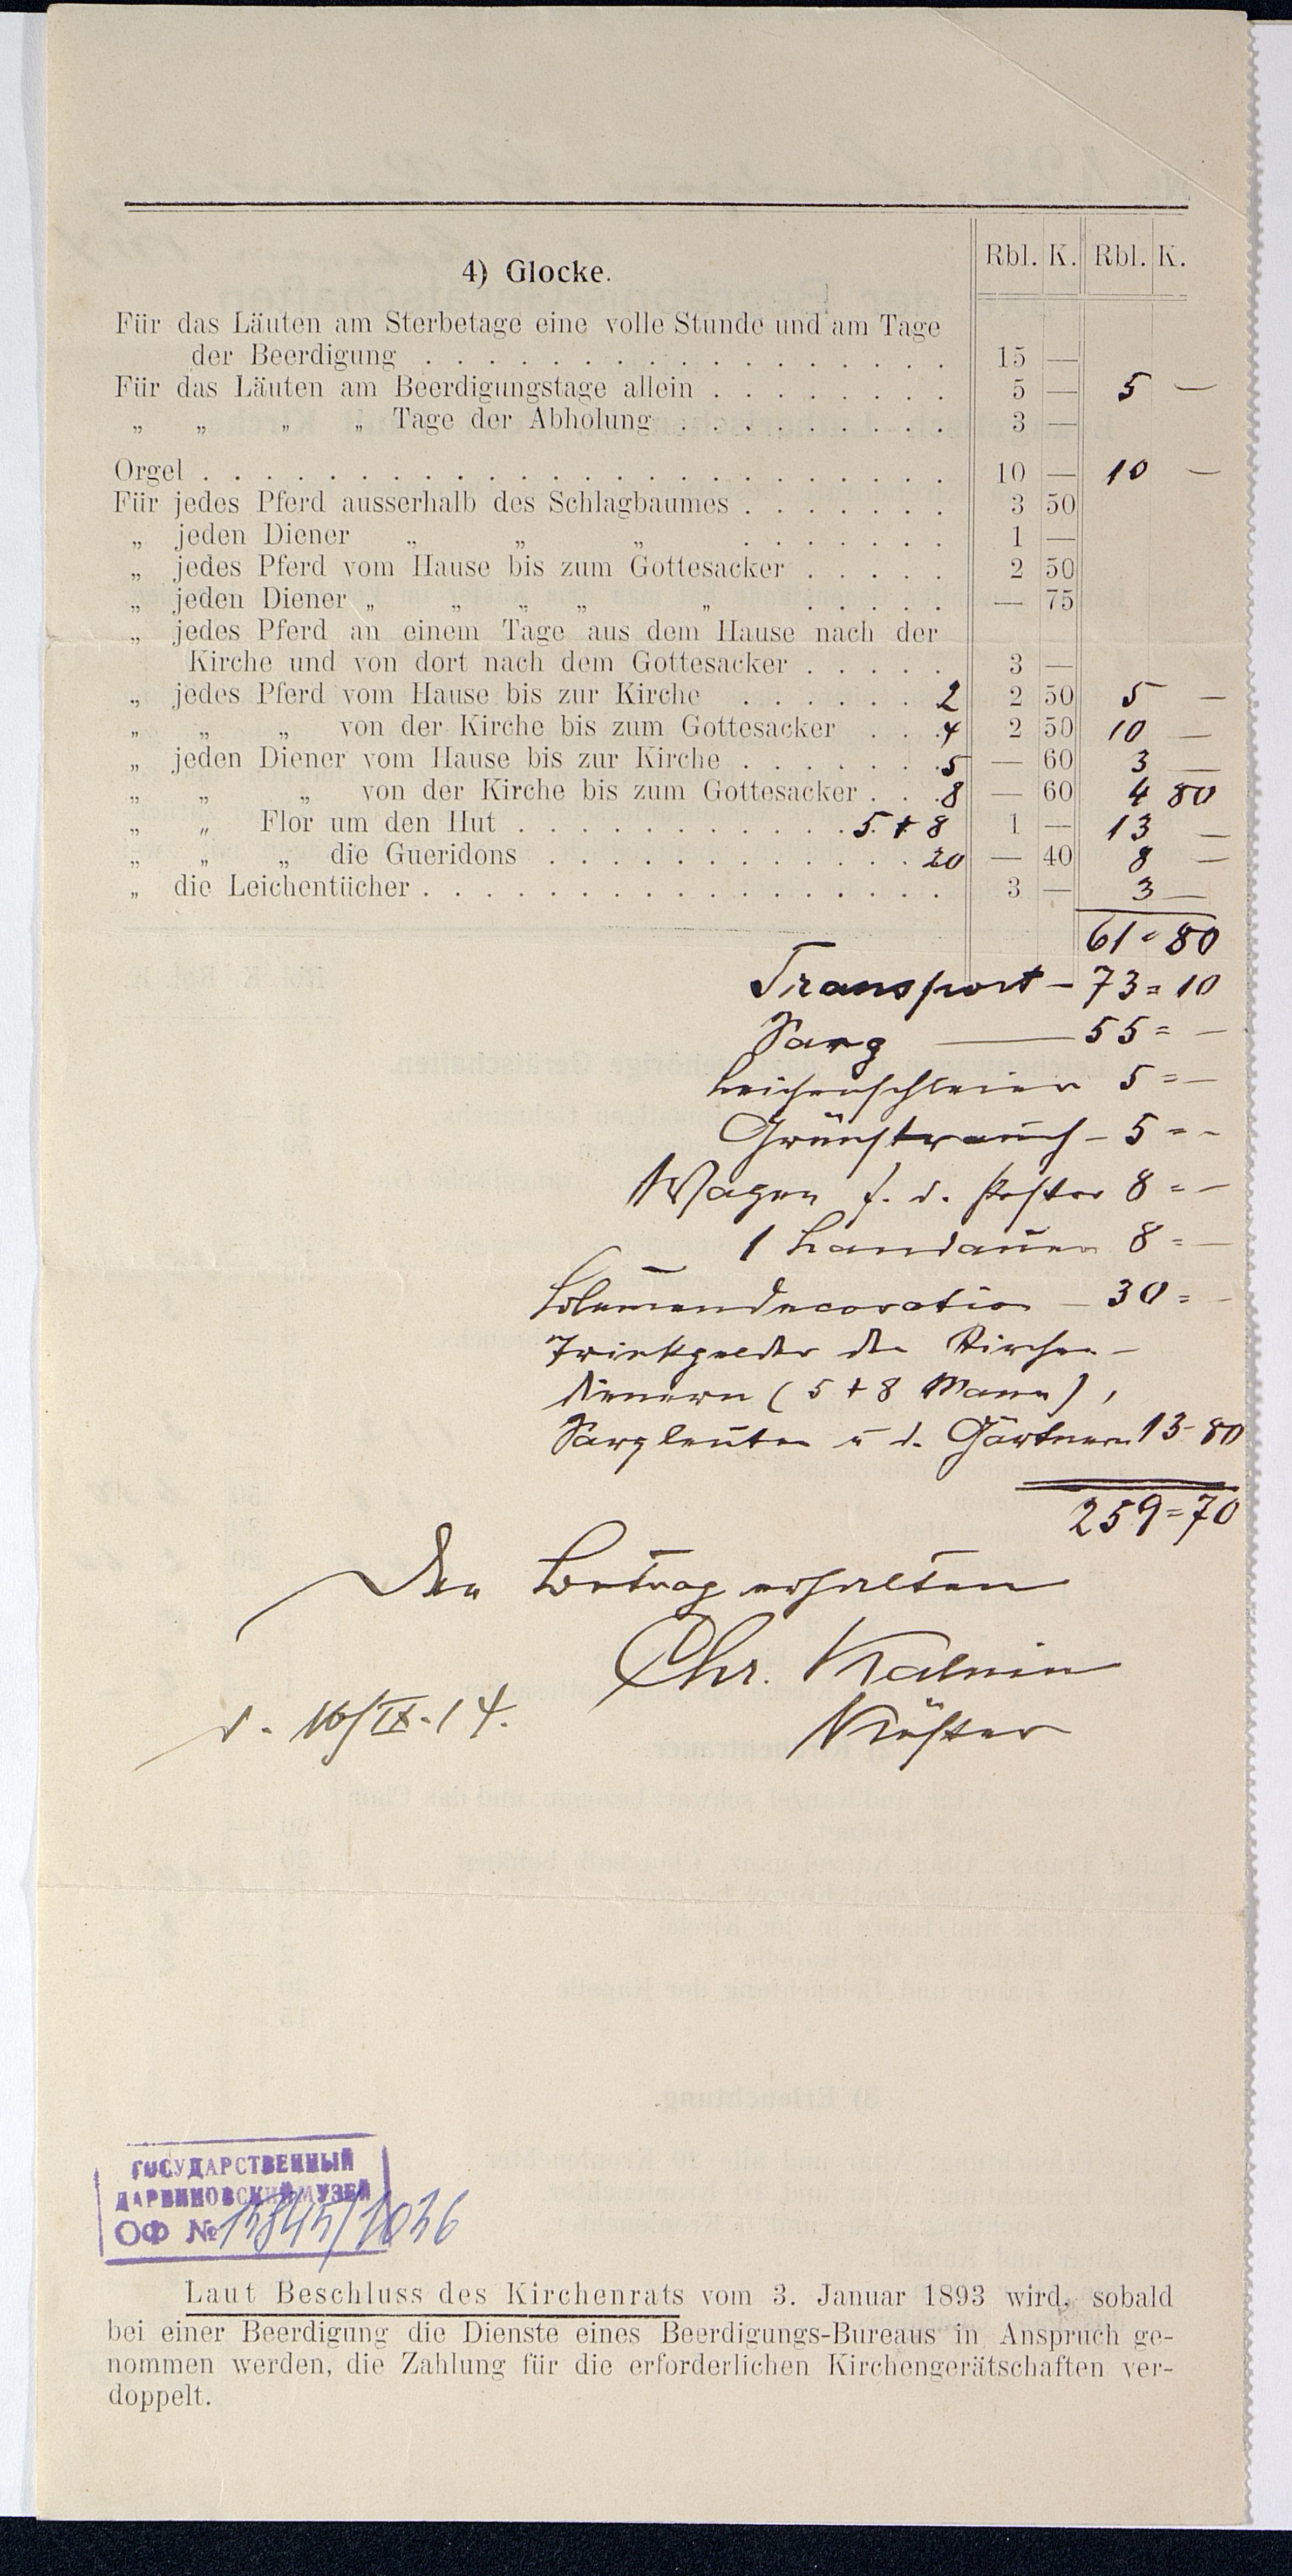 Rbl. K. Rbl. K.
4) Glocke.
Für das Läuten am Sterbetage eine volle Stunde und am Tage
der Beerdigung . . . . . . . . . . . . . . . . . 15 —
Für das Läuten am Beerdigungstage allein . . . . . . . . 5 — 5 —
„ „ „ „ Tage der Abholung . . . . . . . . . 3 —
Orgel . . . . . . . . . . . . . . . . . . . . . . 10 — 10 —
Für jedes Pferd ausserhalb des Schlagbaumes . . . . . . . 3 50
„ jeden Diener „ „ „ . . . . . . . 1 —
„ jedes Pferd vom Hause bis zum Gottesacker . . . . . 2 50
„ jeden Diener „ „ „ „ „ . . . . . — 75
„ jedes Pferd an einem Tage aus dem Hause nach der
Kirche und von dort nach dem Gottesacker . . . . . 3 —
„ jedes Pferd vom Hause bis zur Kirche . . . . . . 2 2 50 5 —
„ „ „ von der Kirche bis zum Gottesacker . . . 4 2 50 10 —
„ jeden Diener vom Hause bis zur Kirche . . . . . . . 5 — 60 3 —
„ „ „ von der Kirche bis zum Gottesacker . . . 8 — 60 4 80
„ „ Flor um den Hut . . . . . . . . . . . 5 + 8 1 — 13 —
„ „ „ die Gueridons . . . . . . . . . . . . . 20 — 40 8 —
„ die Leichentücher . . . . . . . . . . . . . . . . . 3 — 3 —
61 = 80
Transport – 73 = 10
Sarg — 55 = —
Leichenschleier 5 = —
Grünstrauch – 5 = –
Wagen f. d. Pastor 8 = —
1 Landauer 8 = —
Blumendecoration – 30 = –
Trinkgelder den Kirchen-
dienern (5 + 8 Mann),
Sargleuten u d. Gärtnern 13 – 80
259 = 70
Den Betrag erhalten
Chr. Kalnin
Küster
d. 16/IX. 14.
ГОСУДАРСТВЕННЫЙ
ДАРВИНОВСКИЙ МУЗЕЙ
ОФ №
Laut Beschluss des Kirchenrats vom 3. Januar 1893 wird, sobald
bei einer Beerdigung die Dienste eines Beerdigungs-Bureaus in Anspruch ge-
nommen werden, die Zahlung für die erforderlichen Kirchengerätschaften ver-
doppelt.